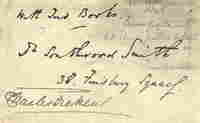 With Two Books.
Dr Southwood Smith
38. Finsbury Square
Charles Dickens